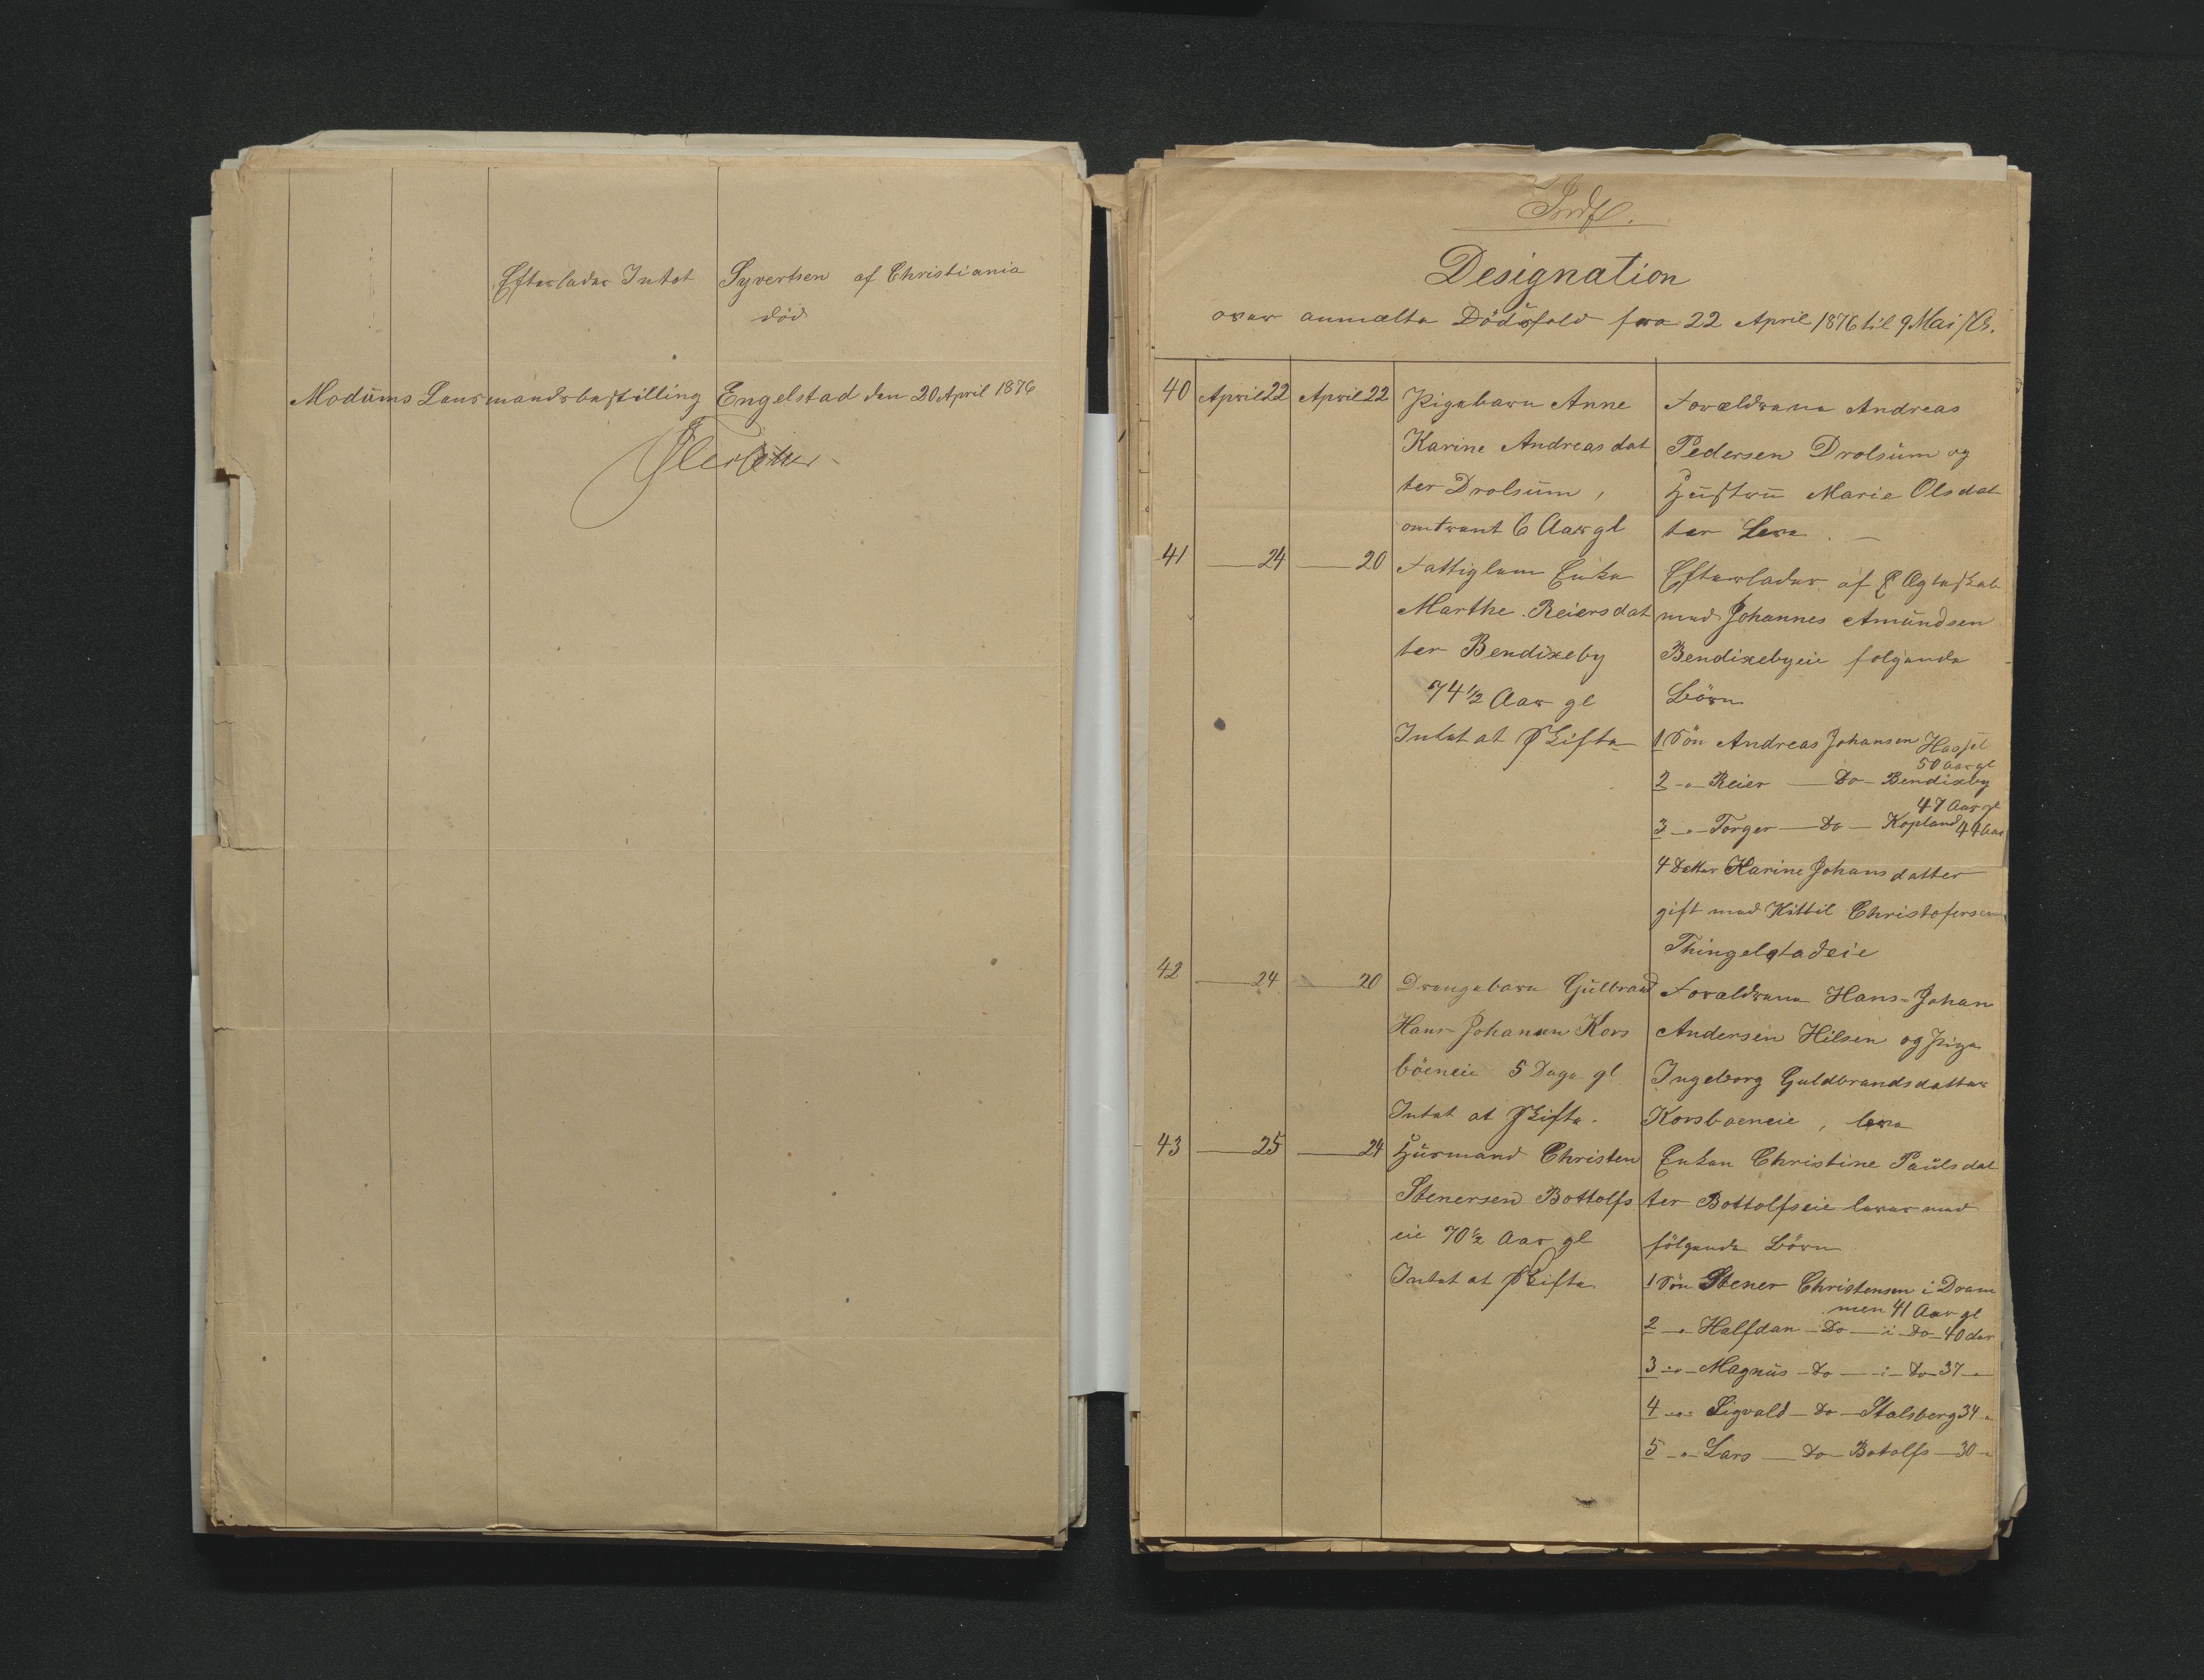 Efterlader Intet
Syvertsen af Christiania
död
Modums Lensmandsbestilling Engelstad den 20 April 1876
Indf.
Designation
over anmeldte Dödsfald fra 22 April 1876 til 9 Mai
40 April 22 April 22 Pigebarn Anne
Karine Andreasdat
ter Drolsum,
omtrent 6 Aar gl
Forældrene Andreas
Pedersen Drolsum og
Hustru Marie Olsdat
ter Leve. —
41 — 24 — 20 Fattiglem Enke
Marthe Reiersdat
ter Bendixeby
74 1/2 Aar gl
Intet at Skifte
Efterlader af Ægteskab
med Johannes Amundsen
Bendixebyeie folgende
Börn
1 Sön Andreas Johansen Hassel
50 Aar gl
2 -"- Reier — Do - Bendixeby
47 Aar gl
3 -"- Torger — Do — Kopland 44 Aar
4 Datter Karine Johansdatter
gift med Kittil Christofersen
Thingelstadeie
42 — 24 — 20 Drengebarn Gulbrand
Hans-Johansen Kors
böeneie 5 Dage gl
Intet at Skifte.
Forældrene Hans-Johan
Andersen Hilsen og Pige
Ingeborg Guldbrandsdatter
Korsboeneie, leve
43 — 25 — 24 Husmand Christen
Stenersen Bottolfs
eie 70 1/2 Aar gl
Intet at Skifte
Enken Christine Paulsdat
ter Bottolfseie lever med
fölgende Börn
1 Sön Stener Christensen i Dram
men 41 Aar gl
2 -"- Halfdan - Do — i - Do - 40 Aar
3 -"- Magnus - Do — i - Do - 37 -"-
4 -"- Sigvald - Do - Stalsberg 34 -"-
5 -"- Lars — Do - Botolfs - 30 -"-